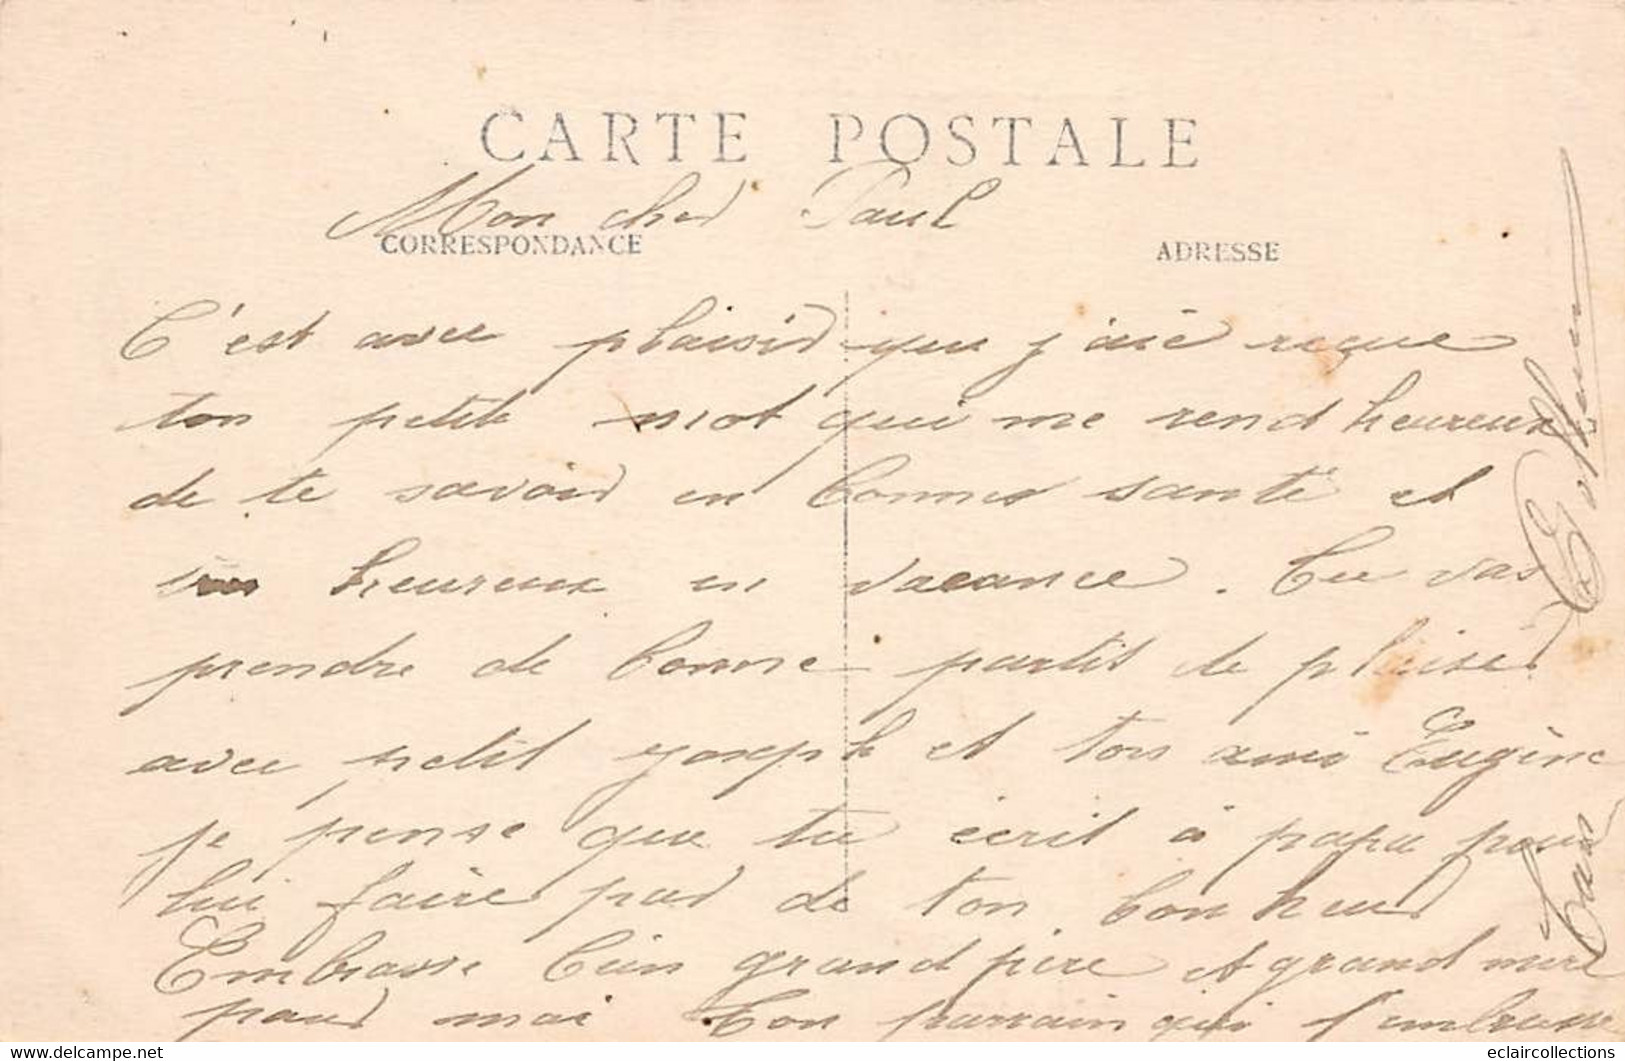 CARTE POSTALE
Mon cher Paul
CORRESPONDANCE
ADRESSE
C'est avec plaisir que j'aie reçue
ton petit mot qui me rend heureux
de te savoir en bonne santé et
heureux en vacance. Tu vas
prendre de bonne partit de plaisir
avec petit joseph et ton ami Eugène
je pense que tu écrit à papa pour
lui faire par de ton bonheur
Embrasse bien grand père et grand mère
pour moi Ton parrain qui t'embrasse
eclaircollections